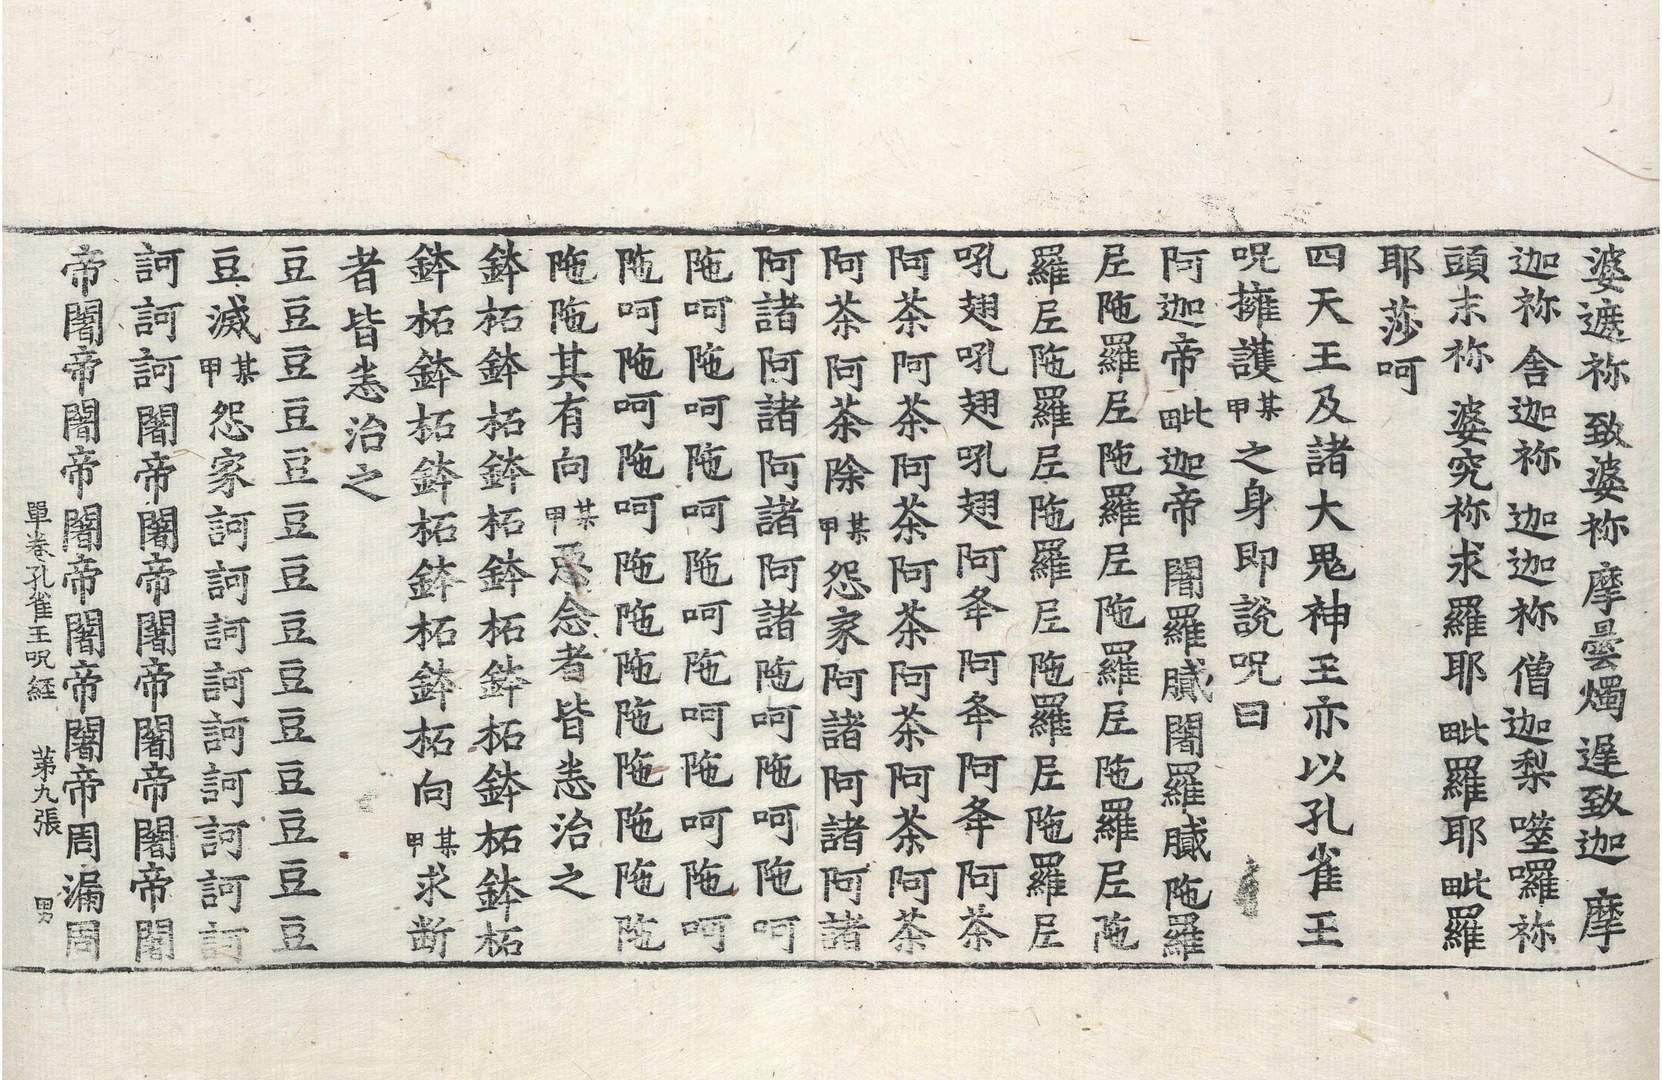 婆遮祢 致婆祢 摩曇燭 遲致迦 摩
迦祢 舍迦祢 迦迦祢 僧迦梨 噬囉祢
頭末祢 婆究祢 求羅耶 毗羅耶 毗羅
耶 莎呵
四天王及諸大鬼神王亦以孔雀王
呪擁護某甲之身即說呪曰
阿迦帝 毗迦帝 闍羅膩 闍羅膩 陁羅
尼陁羅尼陁羅尼陁羅尼陁羅尼陁
羅尼陁羅尼陁羅尼陁羅尼陁羅尼
吼翅吼翅吼翅阿夅阿夅阿夅阿茶
阿茶阿茶阿茶阿茶阿茶阿茶阿茶
阿茶阿茶除某甲怨家阿諸阿諸阿諸
阿諸阿諸阿諸阿諸陁呵陁呵陁呵
陁呵陁呵陁呵陁呵陁呵陁呵陁呵
陁呵陁呵陁呵陁陁陁陁陁陁陁陁
陁陁其有向某甲惡念者皆恙治之
鉢柘鉢柘鉢柘鉢柘鉢柘鉢柘鉢柘
鉢柘鉢柘鉢柘鉢柘鉢柘向某甲求断
者皆恙治之
豆豆豆豆豆豆豆豆豆豆豆豆豆豆
豆滅某甲怨家訶訶訶訶訶訶訶訶訶
訶訶訶闍帝闍帝闍帝闍帝闍帝闍
帝闍帝闍帝闍帝闍帝闍帝周漏周
單卷孔雀王呪経 第九張 男